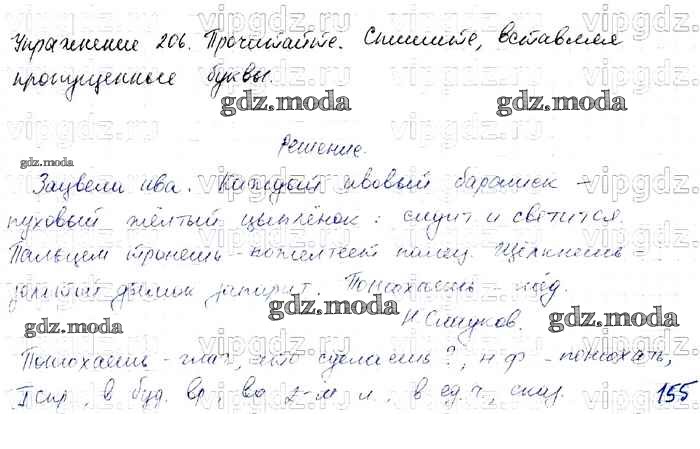 Упражнение 206. Прочитайте. Спишите, вставляя
пропущенные буквы.
Решение.
Зацвели ива. Каждый ивовый барашек –
пуховый жёлтый цыплёнок: сидит и светится.
Пальцем тронешь – пожелтеет палец. Щёлкнешь –
золотый дымок запарит. Понюхаешь – мёд.
Н Сладков.
Понюхаешь – глаг, что сделаешь?, н ф – понюхать,
I спр, в буд. вр, во 2-м л, в ед. ч,
155
gdz.moda
gdz.moda
gdz.moda
gdz.moda
gdz.moda
gdz.moda
gdz.moda
vipgdz.ru